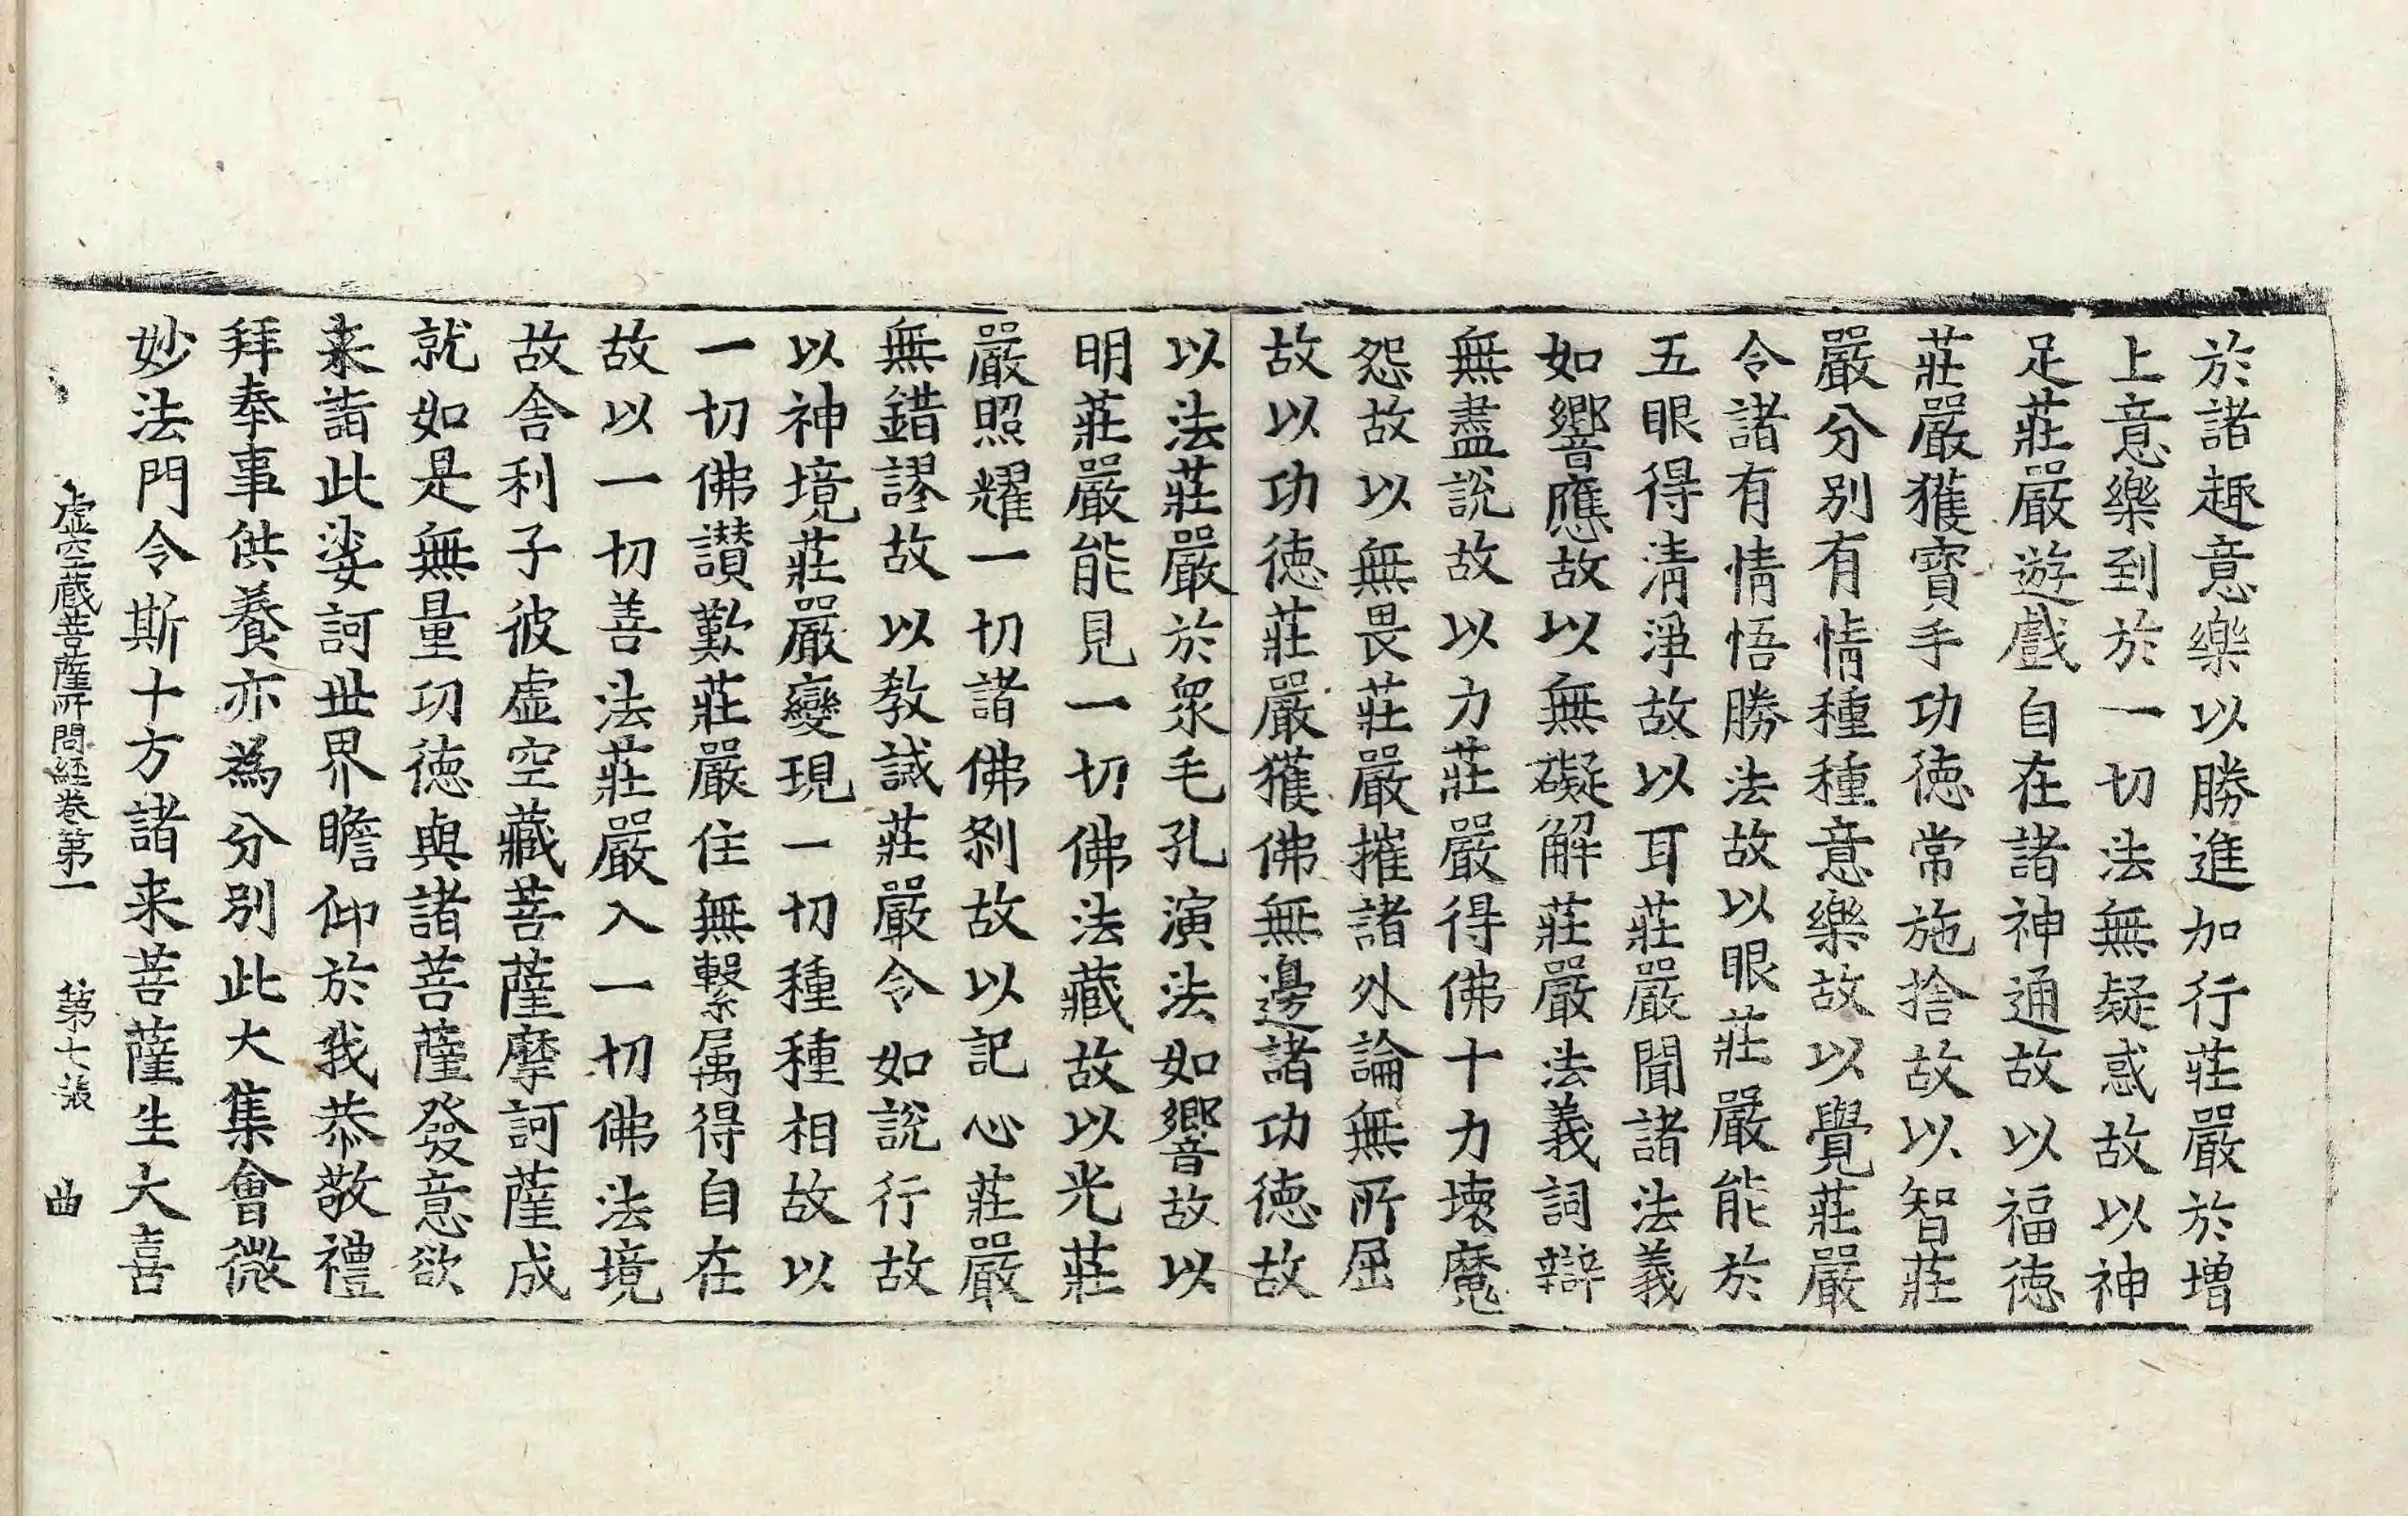 於諸趣意樂以勝進加行莊嚴於增
上意樂到於一切法無疑惑故以神
足莊嚴遊戲自在諸神通故以福徳
莊嚴獲寳手功徳常施捨故以智莊
嚴分別有情種種意樂故以覺莊嚴
令諸有情悟勝法故以眼莊嚴能於
五眼得清淨故以耳莊嚴聞諸法義
如響應故以無礙解莊嚴法義詞辯
無盡說故以力莊嚴得佛十力壞魔
怨故以無畏莊嚴摧諸外論無所屈
故以功徳莊嚴獲佛無邊諸功徳故
以法莊嚴於衆毛孔演法如響故以
明莊嚴能見一切佛法藏故以光莊
嚴照耀一切諸佛刹故以記心莊嚴
無錯謬故以教誡莊嚴令如說行故
以神境莊嚴變現一切種種相故以
一切佛讃歎莊嚴住無繫属得自在
故以一切善法莊嚴入一切佛法境
故舎利子彼虚空藏菩薩摩訶薩成
就如是無量功徳與諸菩薩發意欲
来詣此娑訶丗界瞻仰於我恭敬禮
拜奉事供養亦為分別此大集會微
妙法門令斯十方諸来菩薩生大喜
虚空蔵菩薩所問経卷第一　第七張　曲